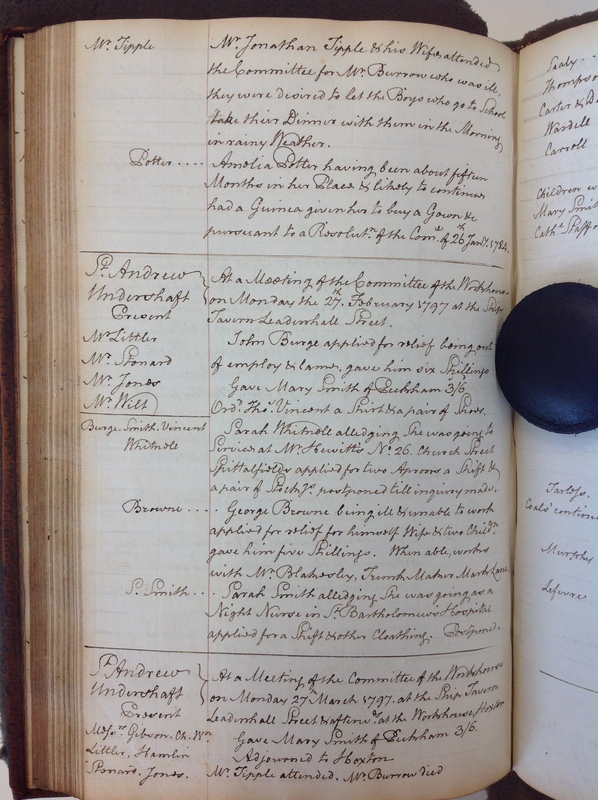 Mr. Tipple
Mr. Jonathan Tipple & his Wife attended
the Committee for Mr. Burrow who was ill,
they were desired to let the Boys who go to School
take their Dinner with them in the Morning
in rainy Weather.
Potter .... Amelia Potter having been about fifteen
Months in her Place & likely to continue
had a Guinea given her to buy a Gown &c
pursuant to a Resolutn. of the Comee. of 26th Janry. 1784.
St. Andrew
Undershaft
Present
Mr. Littler
Mr. Ponard
Mr. Jones
Mr. Wilt
At a Meeting of the Committee of the Workhouse
on Monday the 27th. February 1797 at the Ship
Tavern Leadenhall Street.
John Burge applied for relief being out
of employ & lame, gave him six Shillings
Gave Mary Smith of Peckham 3/6
Ord. Thos. Vincent a Shirt & a pair of Shoes.
Burge. Smith. Vincent
Whitnell
Sarah Whitnell alledging She was going to
Service at Mr. Hewitt's No. 26. Church Street
Spittalfields applied for two Aprons a Shift &
a pair of Pockts. postponed till inquiry made.
Browne .... George Browne being ill & unable to work
applied for relief for himself Wife & two Childn.
gave him five Shillings. When able, works
with Mr. Blakesley, Trunk Maker Mark Lane.
S. Smith .. Sarah Smith alledging She was going as a
Night Nurse in St. Bartholomew's Hospital
applied for a Shift & other Cloathing. Postponed.
St. Andrew
Undershaft
Present
Messrs. Gibson. Ch. Wn
Littler, Hamlin
Ponard. Jones.
At a Meeting of the Committee of the Workhouse
on Monday 27th March 1797. at the Ship Tavern
Leadenhall Street & afterwds. at the Workhouse, Hoxton
Gave Mary Smith of Peckham 3/6.
Adjourned to Hoxton
Mr. Tipple attended. Mr. Burrow died
Sealy.
Thompso
Carter &
Wardell
Carroll
Children
Mary Smit
Cathe. Staffo
Coals continu
Murphy
Lefevre